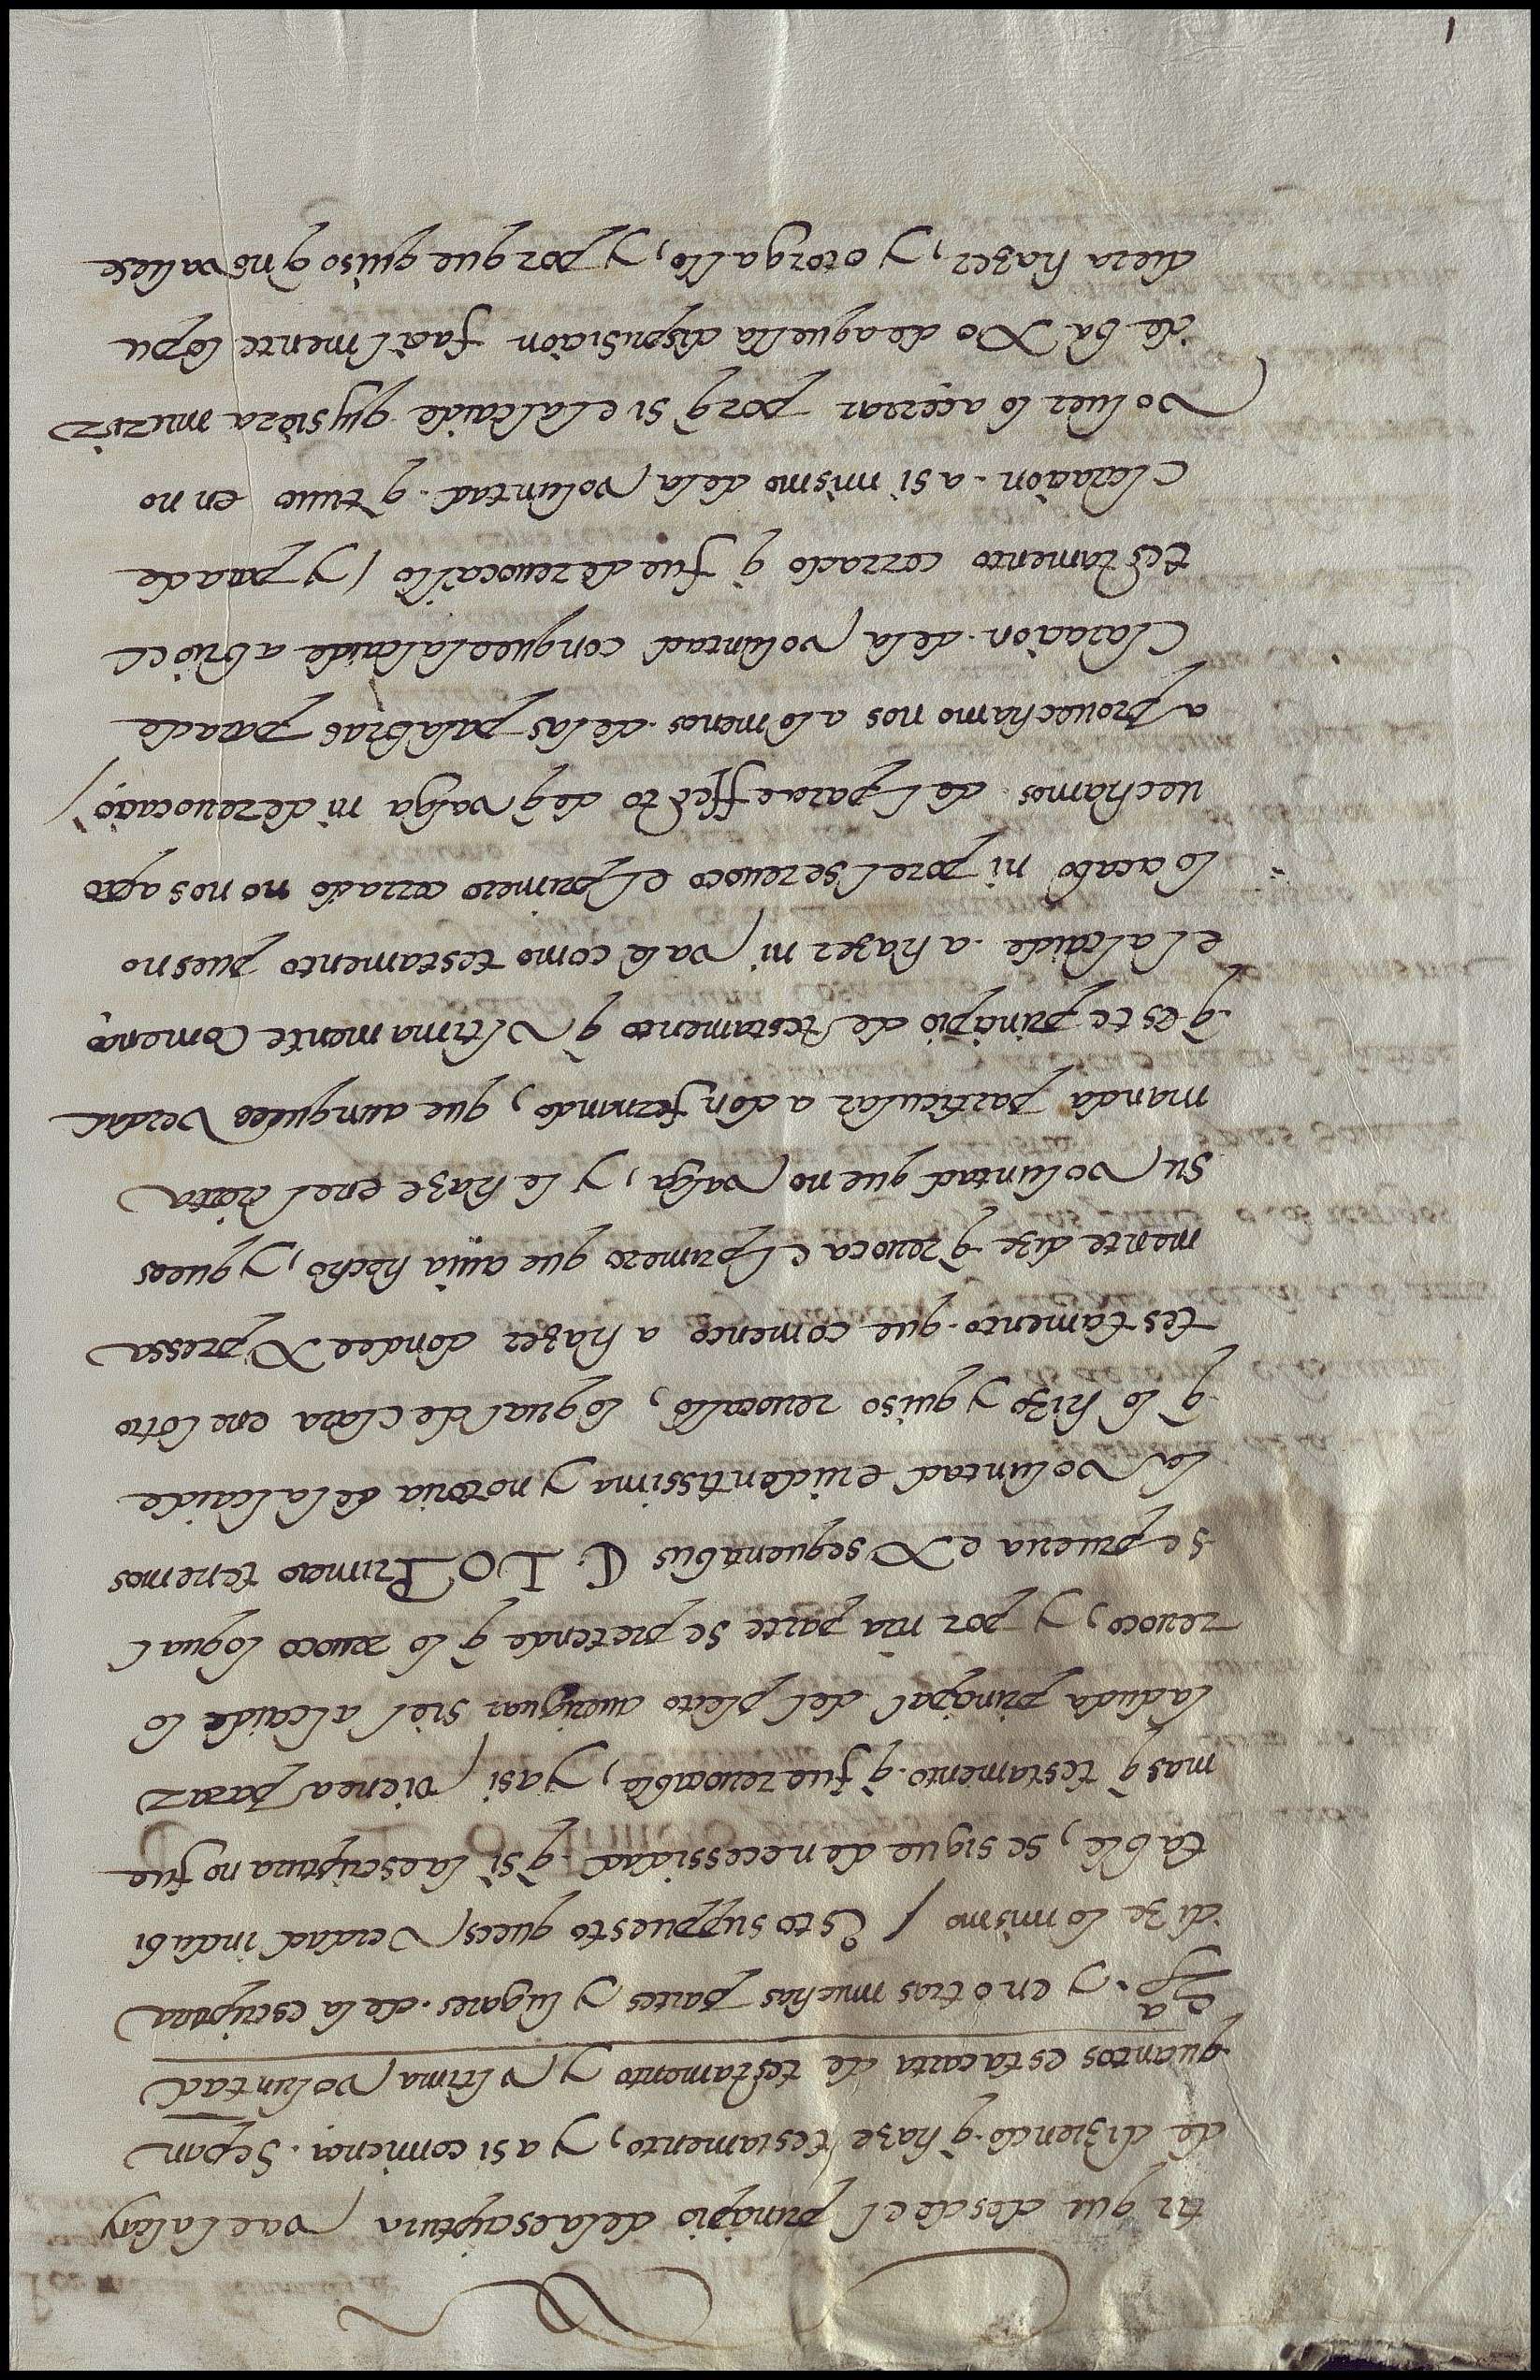 tir que desde el principio dela escriptura va el alcay
de diziendo q̃ haze testamento, y asi comiença. Sepan
quantos esta carta de testamento y vltima voluntad
&a. y en otras muchas partes y lugares. de la escriptura
dize lo mismo / Esto suppuesto que es verdad indubi
table, se sigue de necessidad q̃ si la escriptura no fue
mas q̃ testamento. q̃ fue reuocable, y asi viene a parar
la duda principal del pleito aueriguar si el alcaide lo
reuoco, y por nr̃a parte se pretende q̃ lo reuoco lo qual
se prueua ex sequentibus ¶ Lo Primero tenemos
la voluntad euidentissima y notoria del alcaide
q̃ lo hizo y quiso reuocallo, lo qual declara en el otro
testamento. que començo a hazer donde expressa
mente dize q̃ reuoca el primero que auia hecho, y que es
su voluntad que no valga, y le haze en el otra
manda particular a don fernando, que aunque es verdad
q̃ este principio de testamento q̃ vltimamente començo
el alcaide. a hazer ni vale como testamento pues no
lo acabo ni por el se reuoco el primero cerrado no nos apro
uechamos. del para effecto de q̃ valga ni de reuocaçiõ,
aprouechamo nos a lo menos. de las palabras para de
claraçion. de la voluntad con que el alcaide abrio el
testamento cerrado q̃ fue de reuocallo / y para de
claraçion. a si mismo de la voluntad. q̃ tuuo en no
voluerlo a cerrar porq̃ si el alcaide quysiera morir
de baxo de aquella dispusiçion facilmente lo pu
diera hazer, y otorgallo, y por que quiso q̃ no valiese